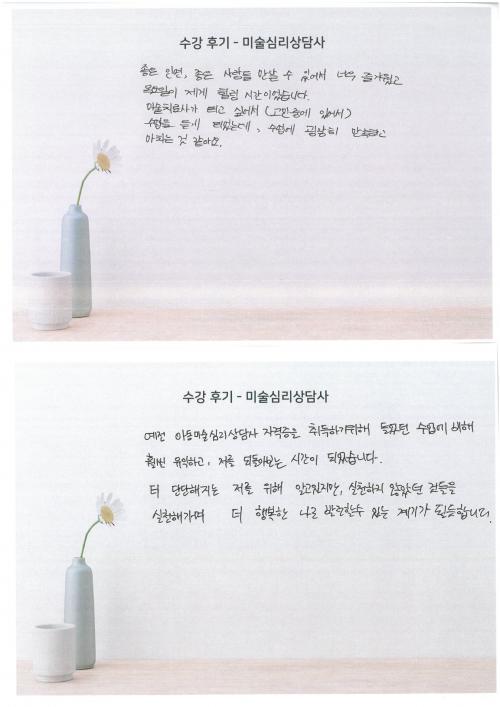 수강 후기 - 미술심리상담사
좋은 인연, 좋은 사람들 만날 수 있어서 너무 즐거웠고
목요일이 제게 힐링 시간이었습니다.
미술치료사가 되고 싶어서 (고민중에 있어서)
수업을 듣게 되었는데, 수업에 굉장히 만족하고
마치는 것 같아요.
수강 후기 - 미술심리상담사
예전 아동미술심리상담사 자격증을 취득하기위해 들었던 수업에 비해
훨씬 유익하고, 저를 되돌아보는 시간이 되었습니다.
더 단단해지는 저를 위해 알고있지만, 실천하지 않았던 것들을
실천해가며 더 행복한 나로 발전할수 있는 계기가 된듯합니다.